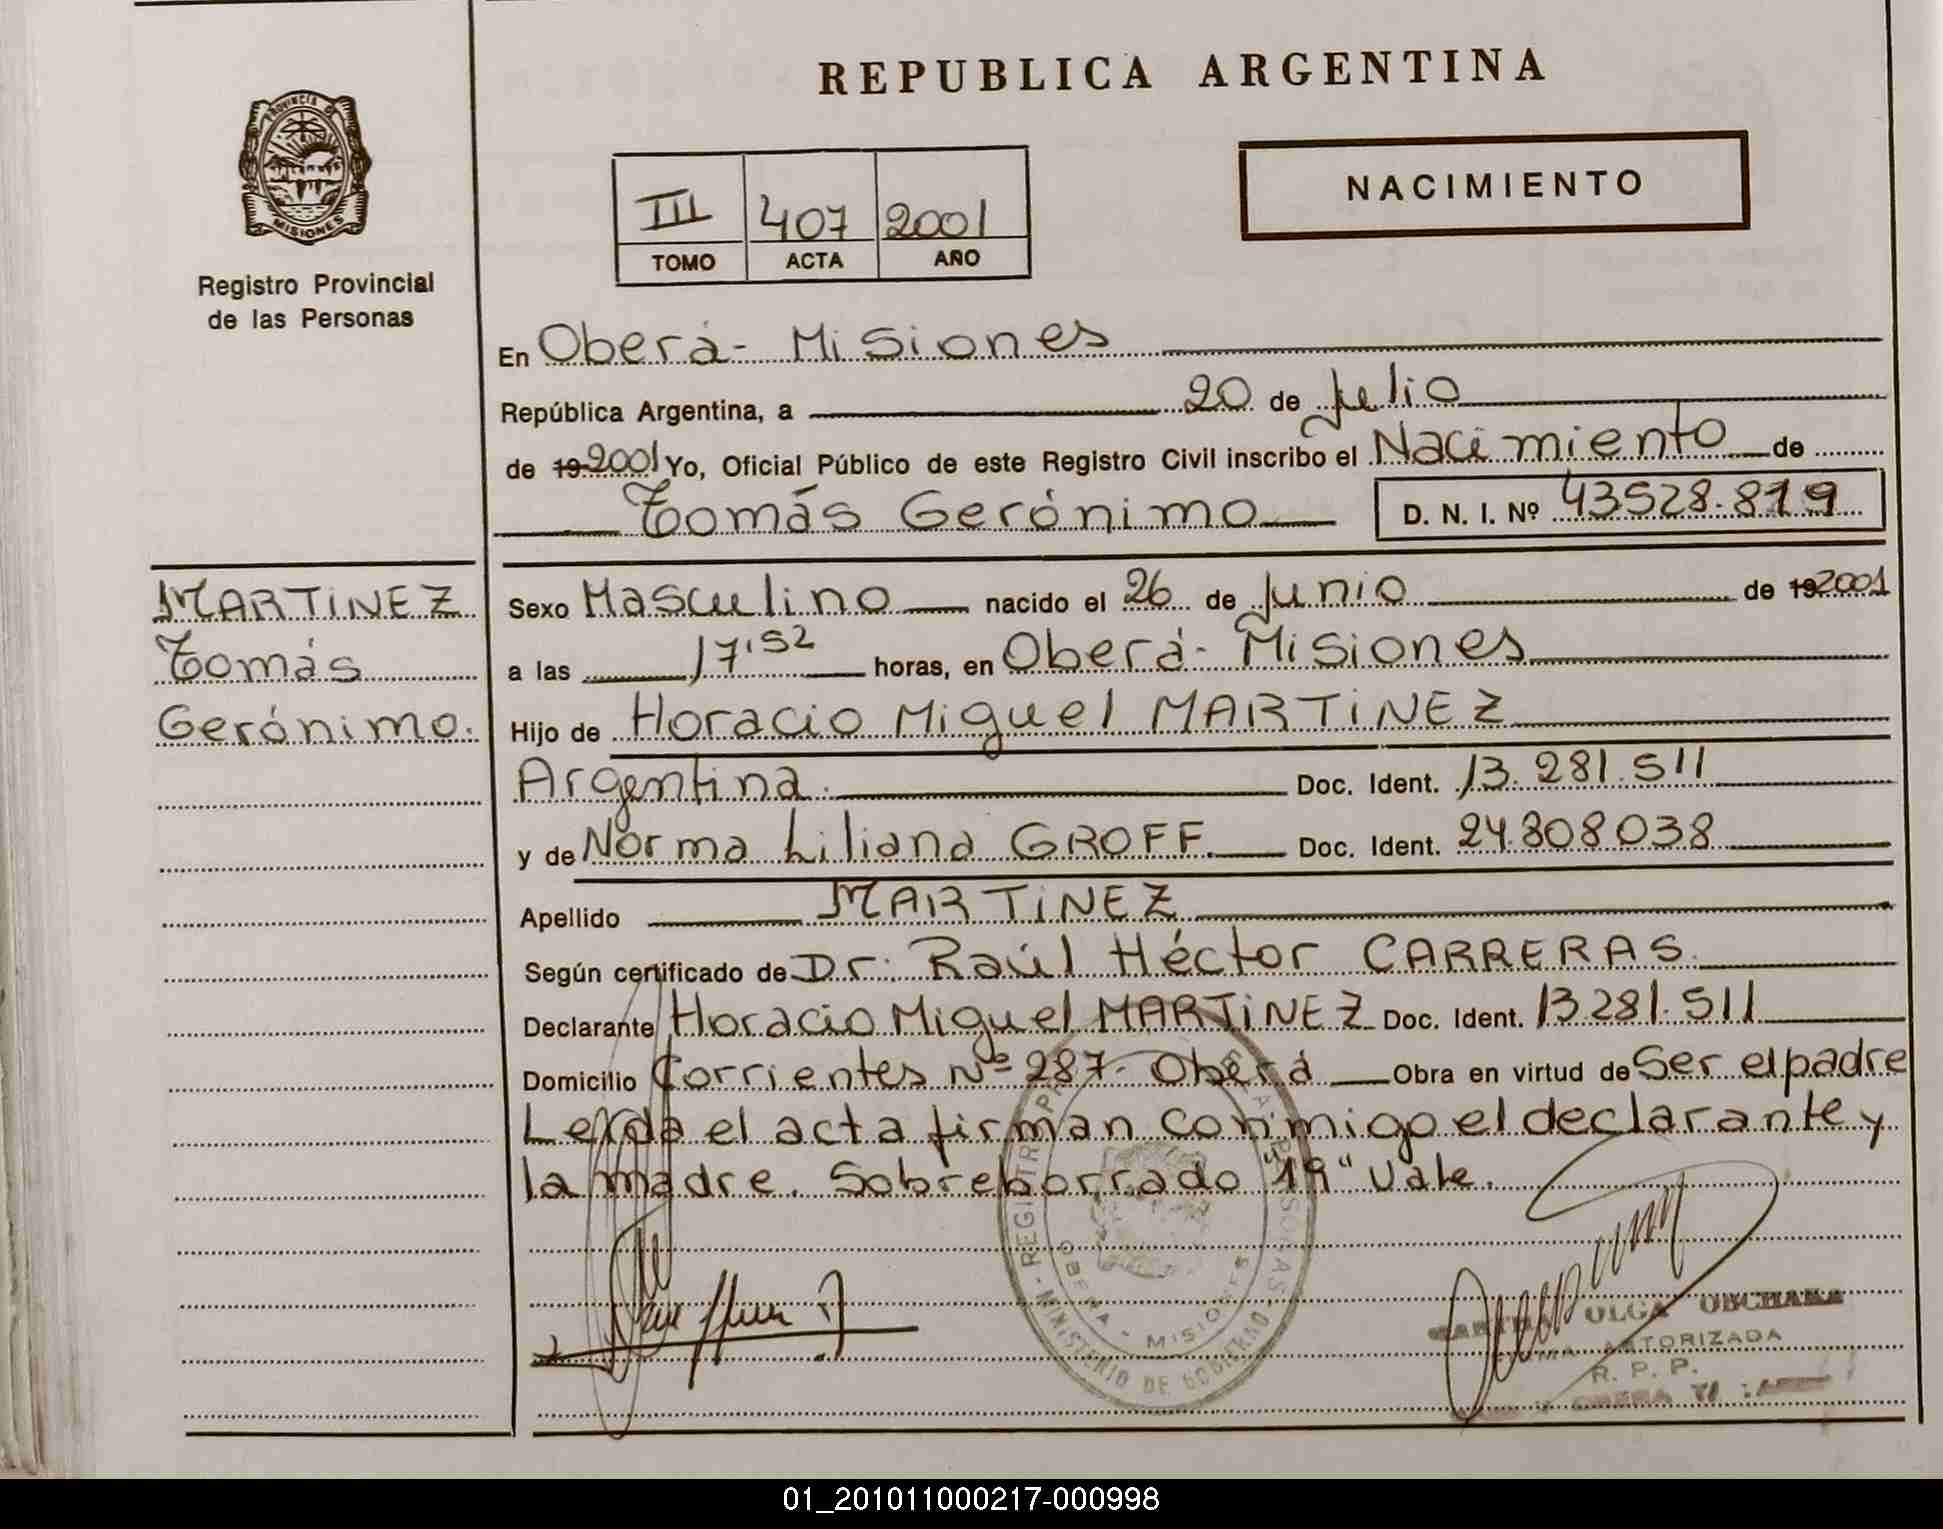 REPUBLICA ARGENTINA
PROVINCIA DE
MISIONES
Registro Provincial
de las Personas
III 407 2001
TOMO ACTA AÑO
NACIMIENTO
En Oberá - Misiones
República Argentina, a 20 de Julio
de 19 2001 Yo, Oficial Público de este Registro Civil inscribo el Nacimiento de
Tomás Gerónimo D. N. I. Nº 43528.819
MARTINEZ
Tomás
Gerónimo.
Sexo Masculino nacido el 26 de Junio de 19 2001
a las 17'52 horas, en Oberá - Misiones
Hijo de Horacio Miguel MARTINEZ
Argentina. Doc. Ident. 13.281.511
y de Norma Liliana GROFF. Doc. Ident. 24.808038
Apellido MARTINEZ
Según certificado de Dr. Raúl Héctor CARRERAS.
Declarante Horacio Miguel MARTINEZ Doc. Ident. 13281.511
Domicilio Corrientes Nº 287. Oberá Obra en virtud de Ser el padre
Leída el acta firman conmigo el declarante y
la madre. Sobreborrado "19" Vale.
OBERA - MISIONES
MINISTERIO DE GOBIERNO
OLGA
AUTORIZADA
R. P. P.
01_201011000217-000998